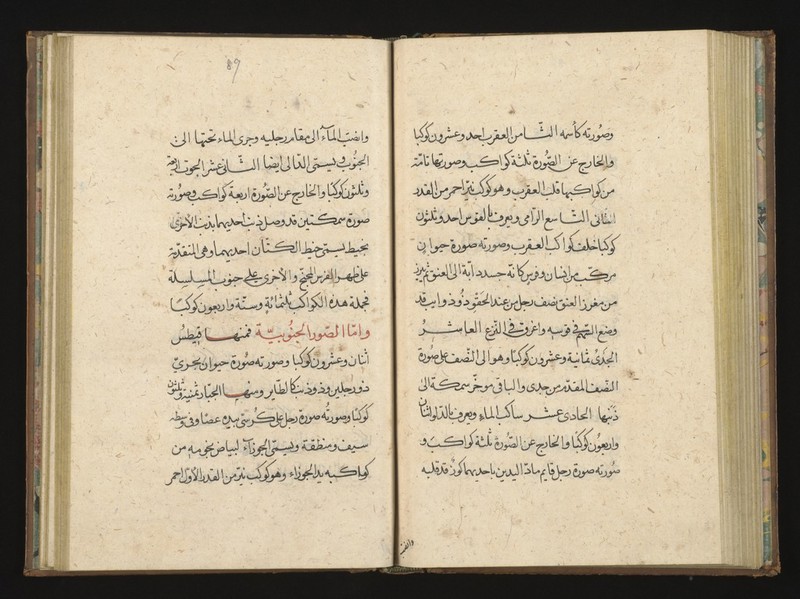 وصورته كأسمه الثامن العقرب احد وعشرون كوكبا
والخارج عن الصورة ثلثة كواكب وصورتها تامة
من كواكبها قلب العقرب وهو كوكب نير احمر من القدر
الثانى التاسع الرامى ويعرف بالقوس احد وثلثون
كوكبا خلف كواكب العقرب وصورته صورة حيوان
مركب من انسان وفرس كانه جسد دابة الى العنق ثم يبرز
من مغرز العنق نصف رجل من عند الحقو ذو ذوايب قد
وضع السهم فى قوسه واغرق فى النزع العاشر
الجدى ثمانية وعشرون كوكبا وهو الى النصف على صورة
النصف المقدم من جدى والباقى موخر سمكة الى
ذنبها الحادى عشر ساكب الماء ويعرف بالدلو اثنان
واربعون كوكبا والخارج عن الصورة ثلثة كواكب و
صورته صورة رجل قايم ماد اليدين باحديهما كوز قد قلبه
وانصب
89
وانصب الماء الى مقام رجليه وجرى الماء تحتها الى
الجنوب ويسمى الدالى ايضا الثانى عشر الحوت اربعة
وثلثون كوكبا والخارج عن الصورة اربعة كواكب وصورته
صورة سمكتين قد وصل ذنب احديهما بذنب الاخرى
بخيط يسمى خيط الكتان احديهما وهى المتقدمة
على ظهر الفرس المجنح والاخرى على جنوب المسلسلة
فجملة هذه الكواكب ثلثمائة وستة واربعون كوكبا
واما الصور الجنوبية فمنها قيطس
اثنان وعشرون كوكبا وصورته صورة حيوان بحرى
ذو رجلين وذو ذنب كالطاير ومنها الجبار ثمنية وثلثون
كوكبا وصورته صورة رجل على كرسى بيده عصا وفى وسطه
سيف ومنطقة ويسمى الجوزاء لبياض نجومه من
كواكبه يد الجوزاء وهو كوكب نير من القدر الاول احمر